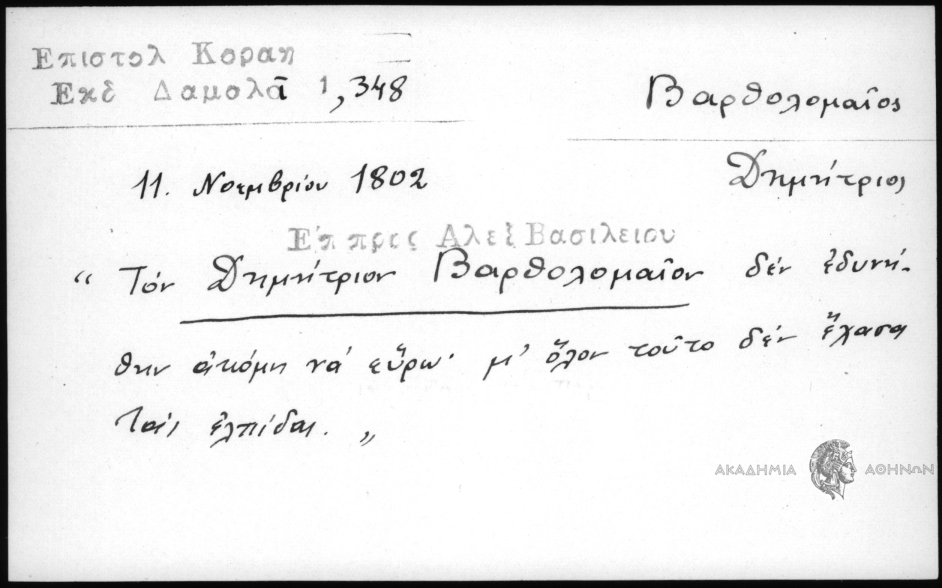 Επιστολ Κοραη
Εκδ Δαμαλᾶ 1,348
Βαρθολομαῖος
Δημήτριος
11. Νοεμβρίου 1802
Επ προς Αλεξ Βασιλειου
“ Τόν Δημήτριον Βαρθολομαῖον δέν ἐδυνή-
θην ἀκόμη νά εὕρω· μ' ὅλον τοῦτο δέν ἔχασα
ταίς ἐλπίδας. „
ΑΚΑΔΗΜΙΑ ΑΘΗΝΩΝ